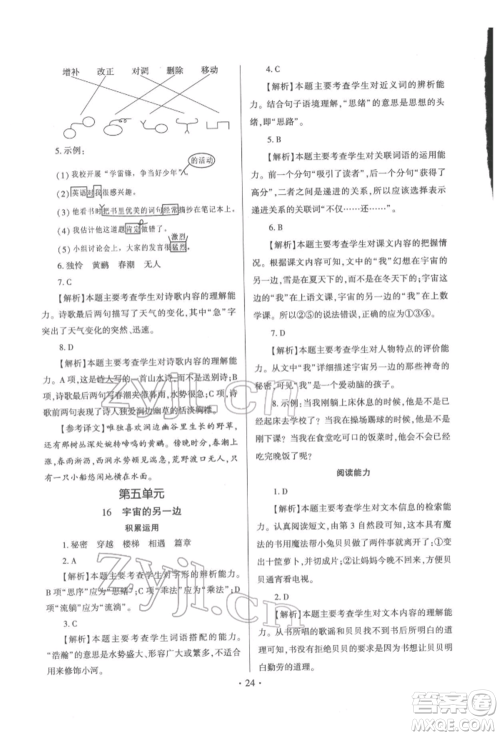 增补 改正 对调 删除 移动
5. 示例：
(1) 我校开展“学雷锋，争当好少年”的活动
(2) 英语对我很感兴趣。
(3) 他看书时把书里优美的词句经常摘抄在笔记本上。
(4) 我估计他这道题肯定做错了。
激烈
(5) 小组讨论会上，大家的发言很猛烈。
6. 独怜 黄鹂 春潮 无人
7. C
【解析】本题主要考查学生对诗歌内容的理解能
力。诗歌最后两句描写了天气的变化，其中“急”字写
出了天气变化的突然、迅速。
8. D
【解析】本题主要考查学生对诗歌内容的理解能
力。A 项，这是诗人写的一首山水诗，不是送别诗；B
项，诗歌前两句描写春潮夹带着春雨，水势很急；D 项，
诗歌前两句写出了诗人独爱涧边幽草的恬淡情怀。
【参考译文】我喜欢涧边幽谷里生长的野草，还
有那树丛深处婉转啼鸣的黄鹂。傍晚时分，春潮上
涨，春雨淅沥，西涧水势顿见湍急，荒野渡口无人，只
有一只小船悠闲地横在水面。
第五单元
16 宇宙的另一边
积累运用
1. 秘密 穿越 楼梯 相遇 篇章
2. A
【解析】本题主要考查学生对字形的辨析能力。
B 项“思序”应为“思绪”，C 项“乘法”应为“乘法”，D
项“流躺”应为“流淌”。
3. C
【解析】本题主要考查学生词语搭配的能力。
“浩瀚”的意思是水势盛大，形容广大或繁多，不能
用来修饰小河。
4. C
【解析】本题主要考查学生对近义词的辨析能
力。结合句子语境理解，“思绪”的意思是思想的头
绪，即“思路”。
5. B
【解析】本题主要考查学生对关联词语的运用能
力。前一个分句“吸引了读者”，后一个分句“获得了
高分”，二者之间是递进关系，所以应该选择表示
递进关系的关联词“不仅……还……”。
6. B
【解析】本题主要考查学生对课文内容的把握情
况。根据课文内容，文中的“我”幻想在宇宙的另一
边，雪是在夏天下的，太阳从西边升起，一边在上数
学课。所以说法错误的应为①③④。
7. C
【解析】本题主要考查学生对人物特点的评价能
力。从文中的“我”能够想象到宇宙的另一边的神奇的
秘密，可以看出“我”是一个爱动脑的孩子。
8. 示例：当我刚躺上床休息时，我会想自己是否已
经起床去学校了？当我在操场踢球时，我会想自己
是否正安静地坐在教室里，和同学们一起听老师讲
课呢？当我在食堂吃可口的饭菜时，我会想自己是否已
经吃完晚饭了呢？
阅读能力
1. D
【解析】本题主要考查学生对文本信息的检索能
力。认真阅读短文可知，选文一共写了两件兔贝贝
用书本魔法帮小兔贝贝解决困难的事情：①变
出十筐萝卜，②让妈妈今晚地不见，以便小兔贝
贝通宵看电视。
2. D
【解析】本题主要考查学生对文本内容的理解能
力。从书所唱的歌谣和贝贝最后所明白的道理可
知，贝贝不再要求书帮他实现愿望，是因为贝贝明
白勤劳的道理。
· 24 ·
zyjl.cn
zyjl.cn